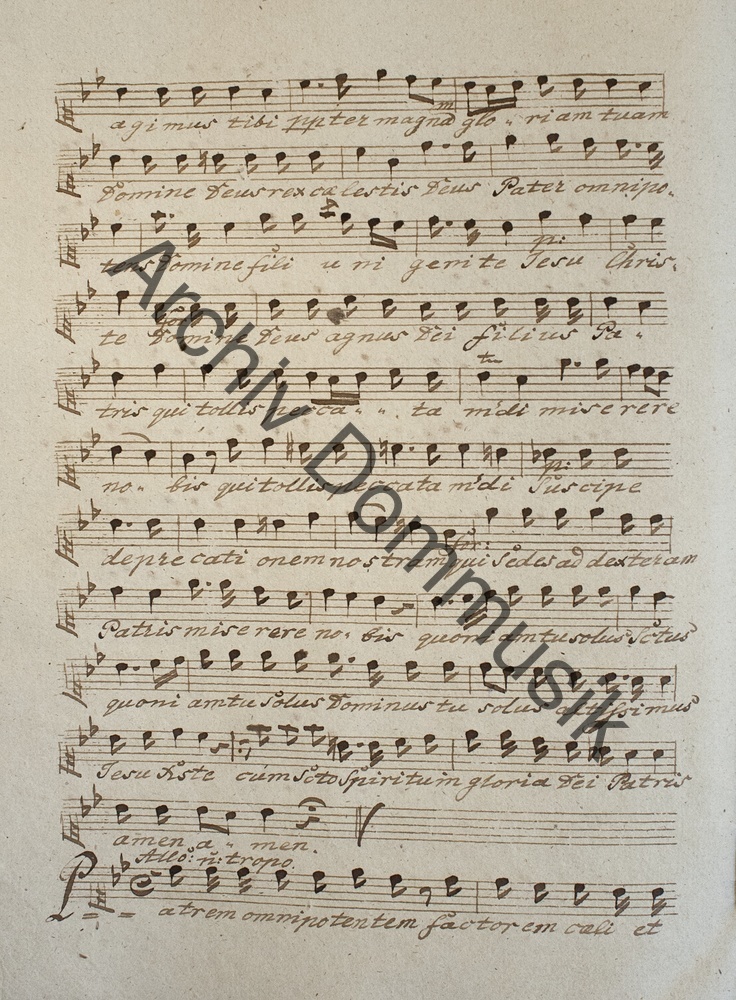 agimus tibi ppter magnam glo - riam tuam
Domine Deus rex cælestis Deus Pater omnipo-
tens Domine fili u ni geni te Jesu Chris-
p:
te Domine Deus agnus Dei filius Pa -
tris qui tollis pecca - - ta m̄di mise rere
no - bis qui tollis peccata m̄di Suscipe
p:
depre cati onem nostram qui Sedes ad dexteram
for:
Patris mise rere no - bis quoni am tu solus Sctus
quoni am tu Solus Dominus tu solus altissimus
Jesu Xste cúm Scto Spiritu in gloria Dei Patris
amen a - men.
Allo: n: tropo.
Patrem omnipotentem factorem cæli et
Archiv Dommusik